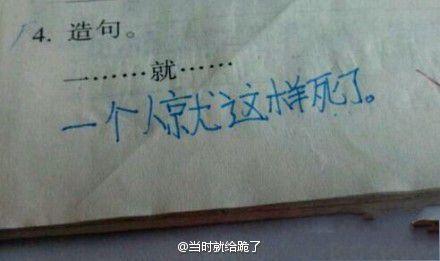 4. 造句。
一……就……
一个人就这样死了。
@当时就给跪了